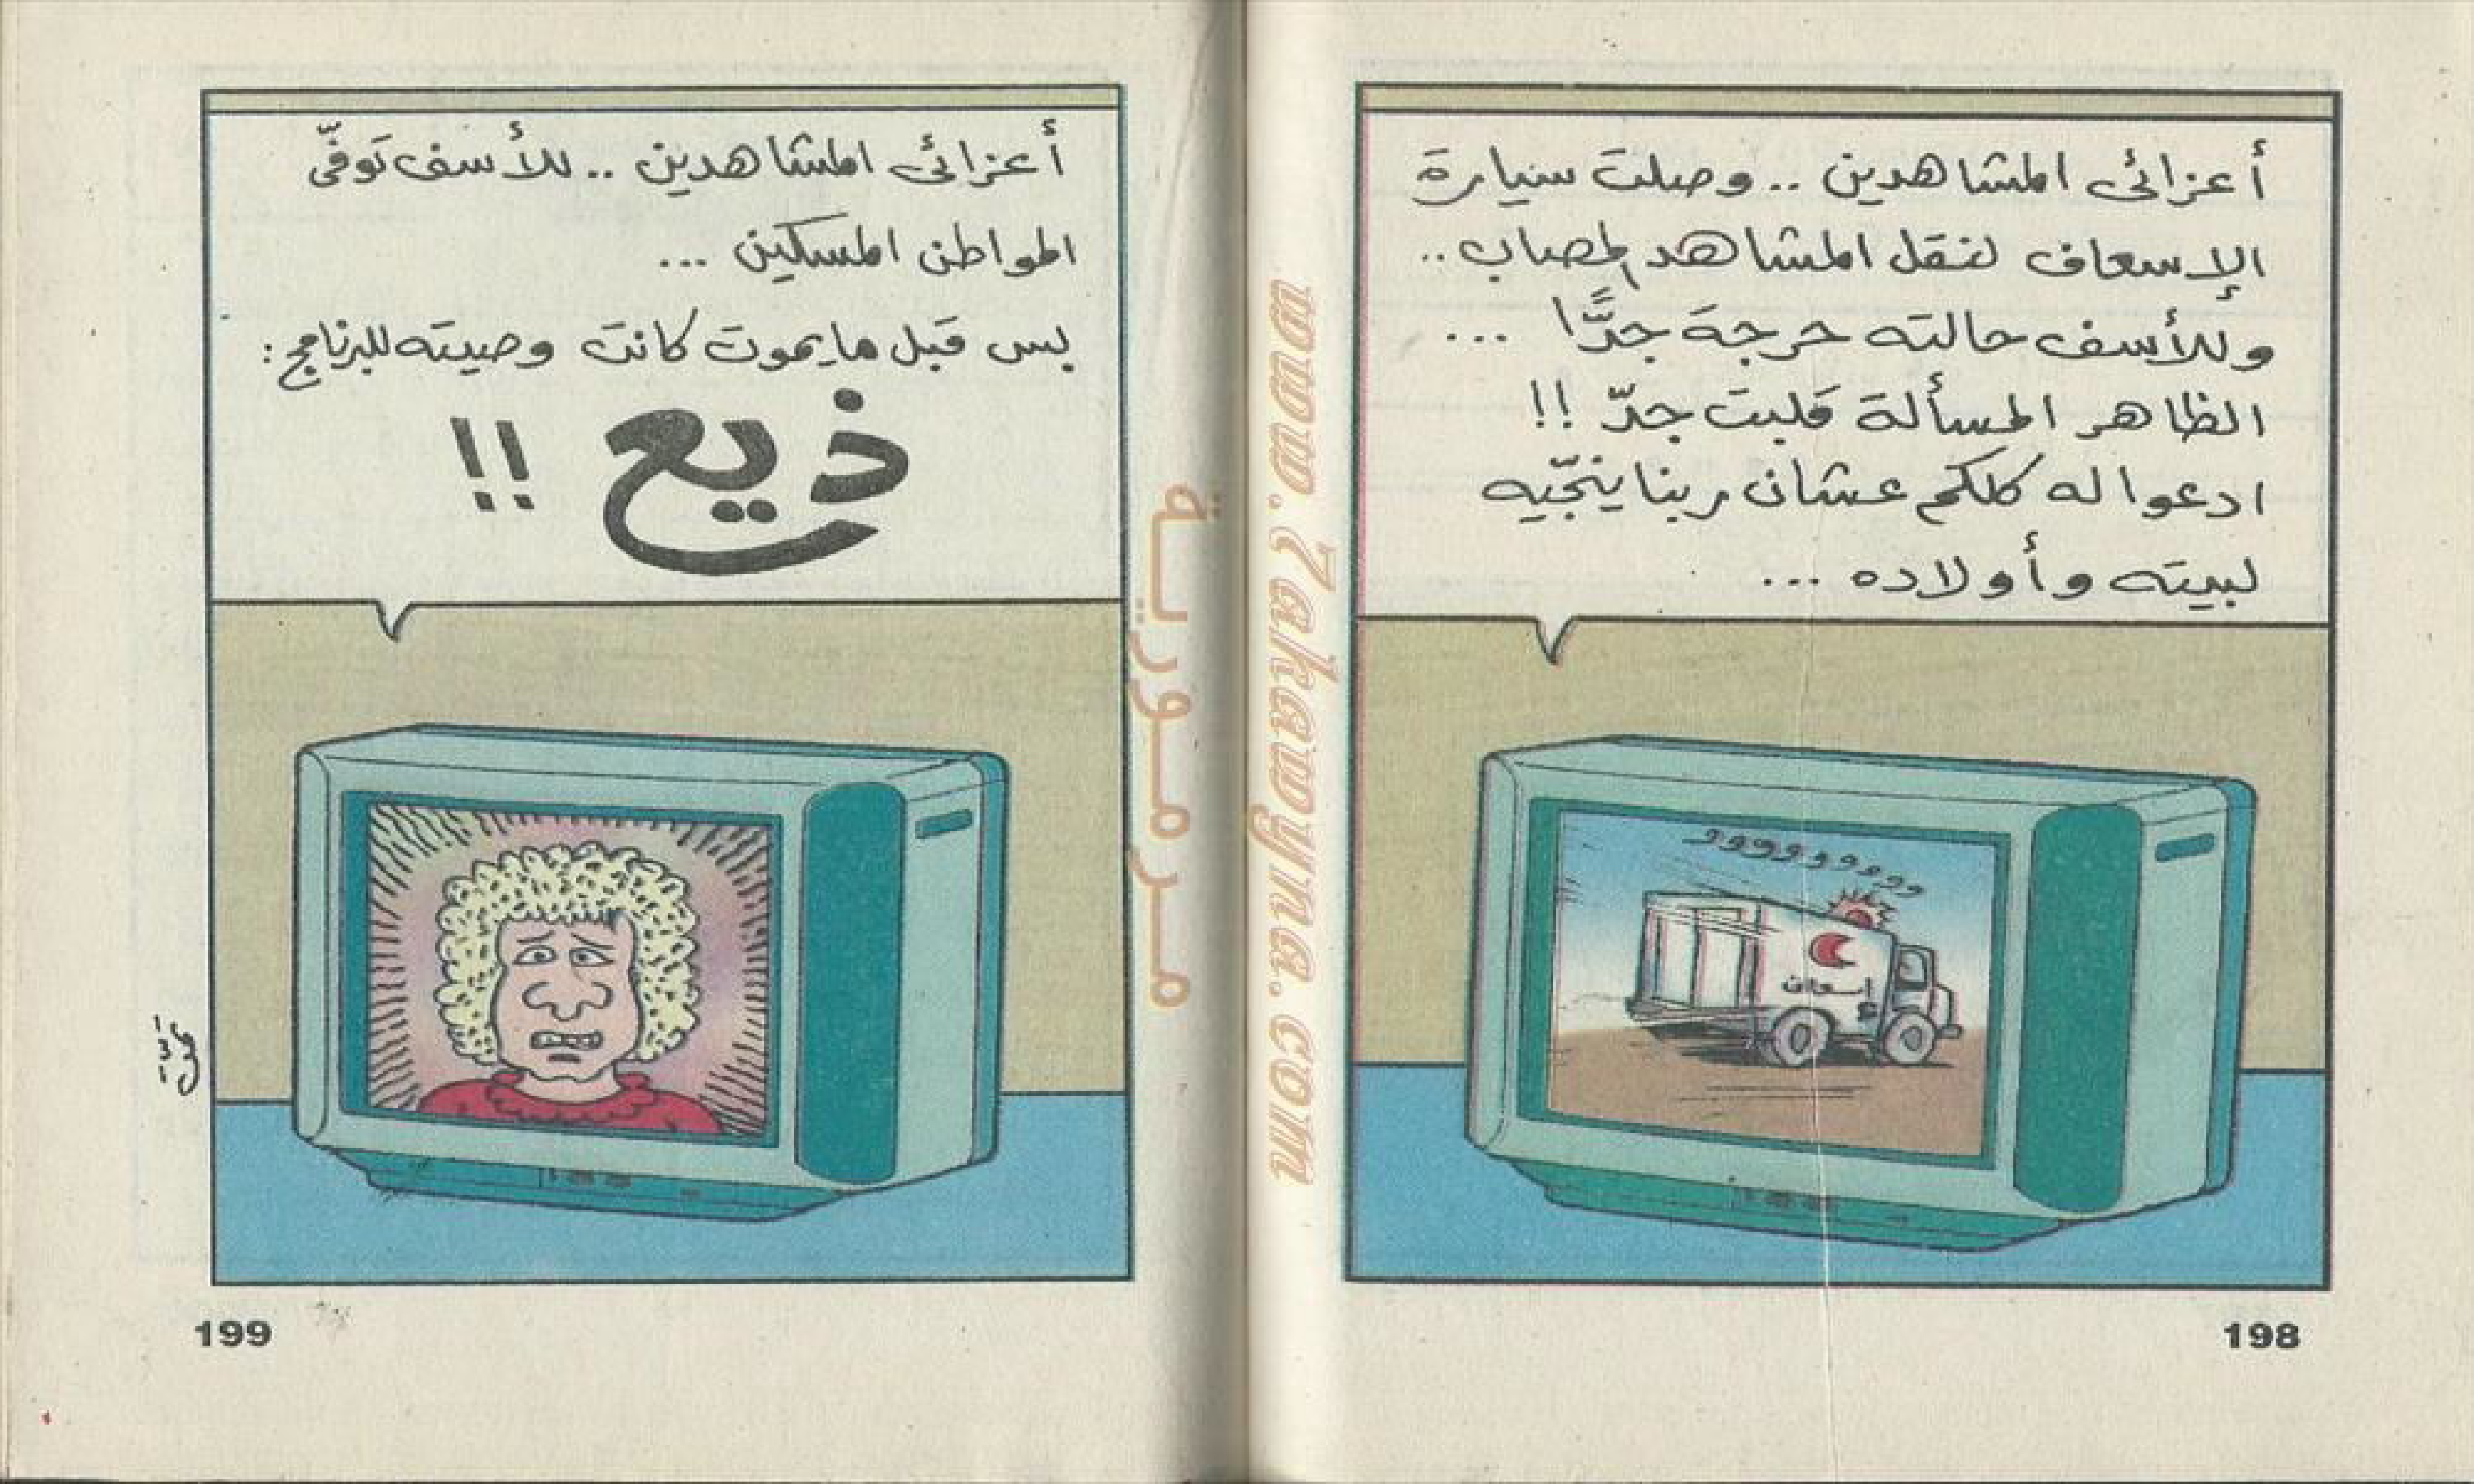 أعزائى المشاهدين .. وصلت سيارة
الإسعاف لنقل المشاهد المصاب ..
وللأسف حالته حرجة جدًّا ...
الظاهر المسألة قلبت جدّ !!
ادعوا له كلكم عشان ربنا ينجّيه
لبيته وأولاده ...
وووووووووو
إسعاف
198
www.7akawyna.com
مرمورية
أعزائى المشاهدين .. للأسف توفّى
المواطن المسكين ...
بس قبل ما يموت كانت وصيته للبرنامج :
ذيع !!
199